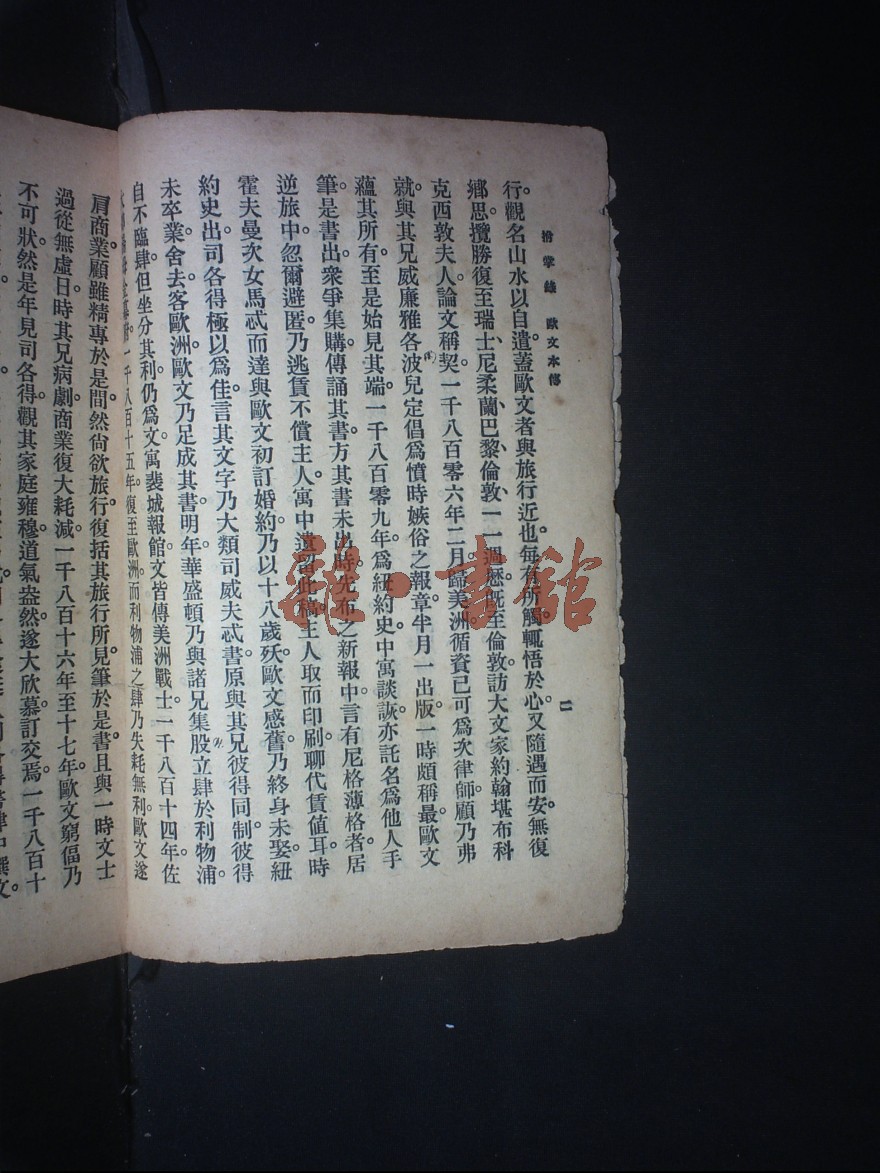 拊掌錄 歐文本傳
二
行。觀名山水以自遣。蓋歐文者與旅行近也。每有所觸。輒悟於心。又隨遇而安。無復
鄉思。攬勝復至瑞士、尼柔蘭、巴黎、倫敦、一一週歷。既至倫敦。訪大文家約翰堪布科
克西敦夫人論文稱契。一千八百零六年二月。歸美洲。循資已可為次律師。顧乃弗
就。與其兄威廉雅各波兒定倡為憤時嫉俗之報章。半月一出版。一時頗稱最。歐文
蘊其所有。至是始見其端。一千八百零九年。為紐約史。中寓談諔。亦託名為他人手
筆。是書出。衆爭集購傳誦其書。方其書未出時。先布之新報中。言有尼格薄格者。居
逆旅中。忽爾避匿。乃逃賃不償。主人寓中遺留此稿。主人取而印刷。聊代賃值耳。時
霍夫曼次女馬忒而達與歐文初訂婚約。乃以十八歲殀。歐文感舊。乃終身未娶。紐
約史出。司各得極以為佳。言其文字乃大類司威夫忒。書原與其兄彼得同制。彼得
未卒業舍去。客歐洲。歐文乃足成其書。明年。華盛頓乃與諸兄集股立肆於利物浦。
自不臨肆。但坐分其利。仍為文寓裴城報館。文皆傳美洲戰士。一千八百十四年。佐
一千八百十五年。復至歐洲。而利物浦之肆。乃失耗無利。歐文遂
肩商業。顧雖精專於是。間然尙欲旅行。復括其旅行所見。筆於是書。且與一時文士
過從無虛日。時其兄病劇。商業復大耗減。一千八百十六年至十七年。歐文窮偪乃
不可狀。然是年見司各得。觀其家庭雍穆。道氣盎然。遂大欣慕訂交焉。一千八百十
雜·書館